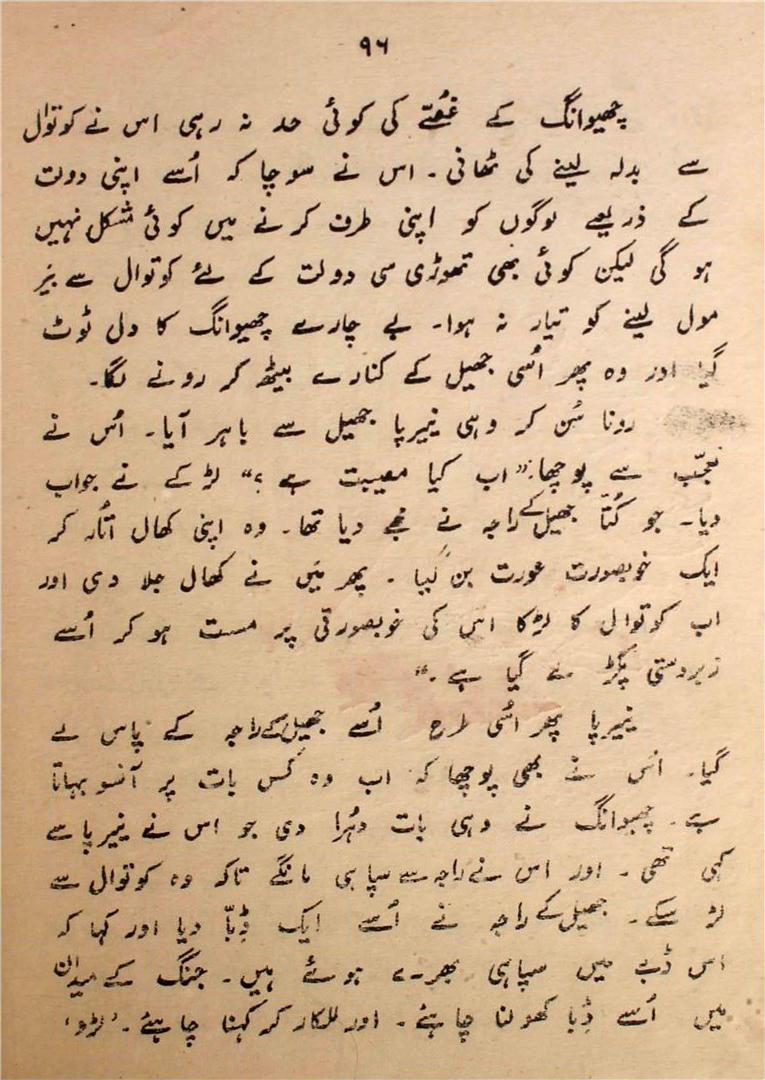 ۹۶
چھیوانگ کے غُصّے کی کوئی حد نہ رہی اس نے کوتوال
سے بدلہ لینے کی ٹھانی۔ اس نے سوچا کہ اُسے اپنی دولت
کے ذریعے لوگوں کو اپنی طرف کرنے میں کوئی مشکل نہیں
ہو گی لیکن کوئی بھی تھوڑی سی دولت کے لئے کوتوال سے بَیر
مول لینے کو تیار نہ ہوا۔ بے چارے چھیوانگ کا دل ٹوٹ
گیا اور وہ پھر اُسی جھیل کے کنارے بیٹھ کر رونے لگا۔
رونا سُن کر وہی نیرپا جھیل سے باہر آیا۔ اُس نے
تعجّب سے پوچھا: "اب کیا مصیبت ہے؟" لڑکے نے جواب
دیا۔ جو کُتّا جھیل کے راجہ نے مجھے دیا تھا۔ وہ اپنی کھال اُتار کر
ایک خوبصورت عورت بن گیا۔ پھر مَیں نے کھال جلا دی اور
اب کوتوال کا لڑکا اس کی خوبصورتی پر مست ہو کر اُسے
زبردستی پکڑ لے گیا ہے۔"
نیرپا پھر اُسی طرح اُسے جھیل کے راجہ کے پاس لے
گیا۔ اُس نے بھی پوچھا کہ اب وہ کس بات پر آنسو بہاتا
ہے۔ چھیوانگ نے وہی بات دُہرا دی جو اس نے نیرپا سے
کہی تھی۔ اور اس نے راجہ سے سپاہی مانگے تاکہ وہ کوتوال سے
لڑ سکے۔ جھیل کے راجہ نے اُسے ایک ڈِبّا دیا اور کہا کہ
اس ڈبے میں سپاہی بھرے ہوئے ہیں۔ جنگ کے میدان
میں اُسے ڈِبا کھولنا چاہئے۔ اور للکار کر کہنا چاہئے۔ 'لڑو'